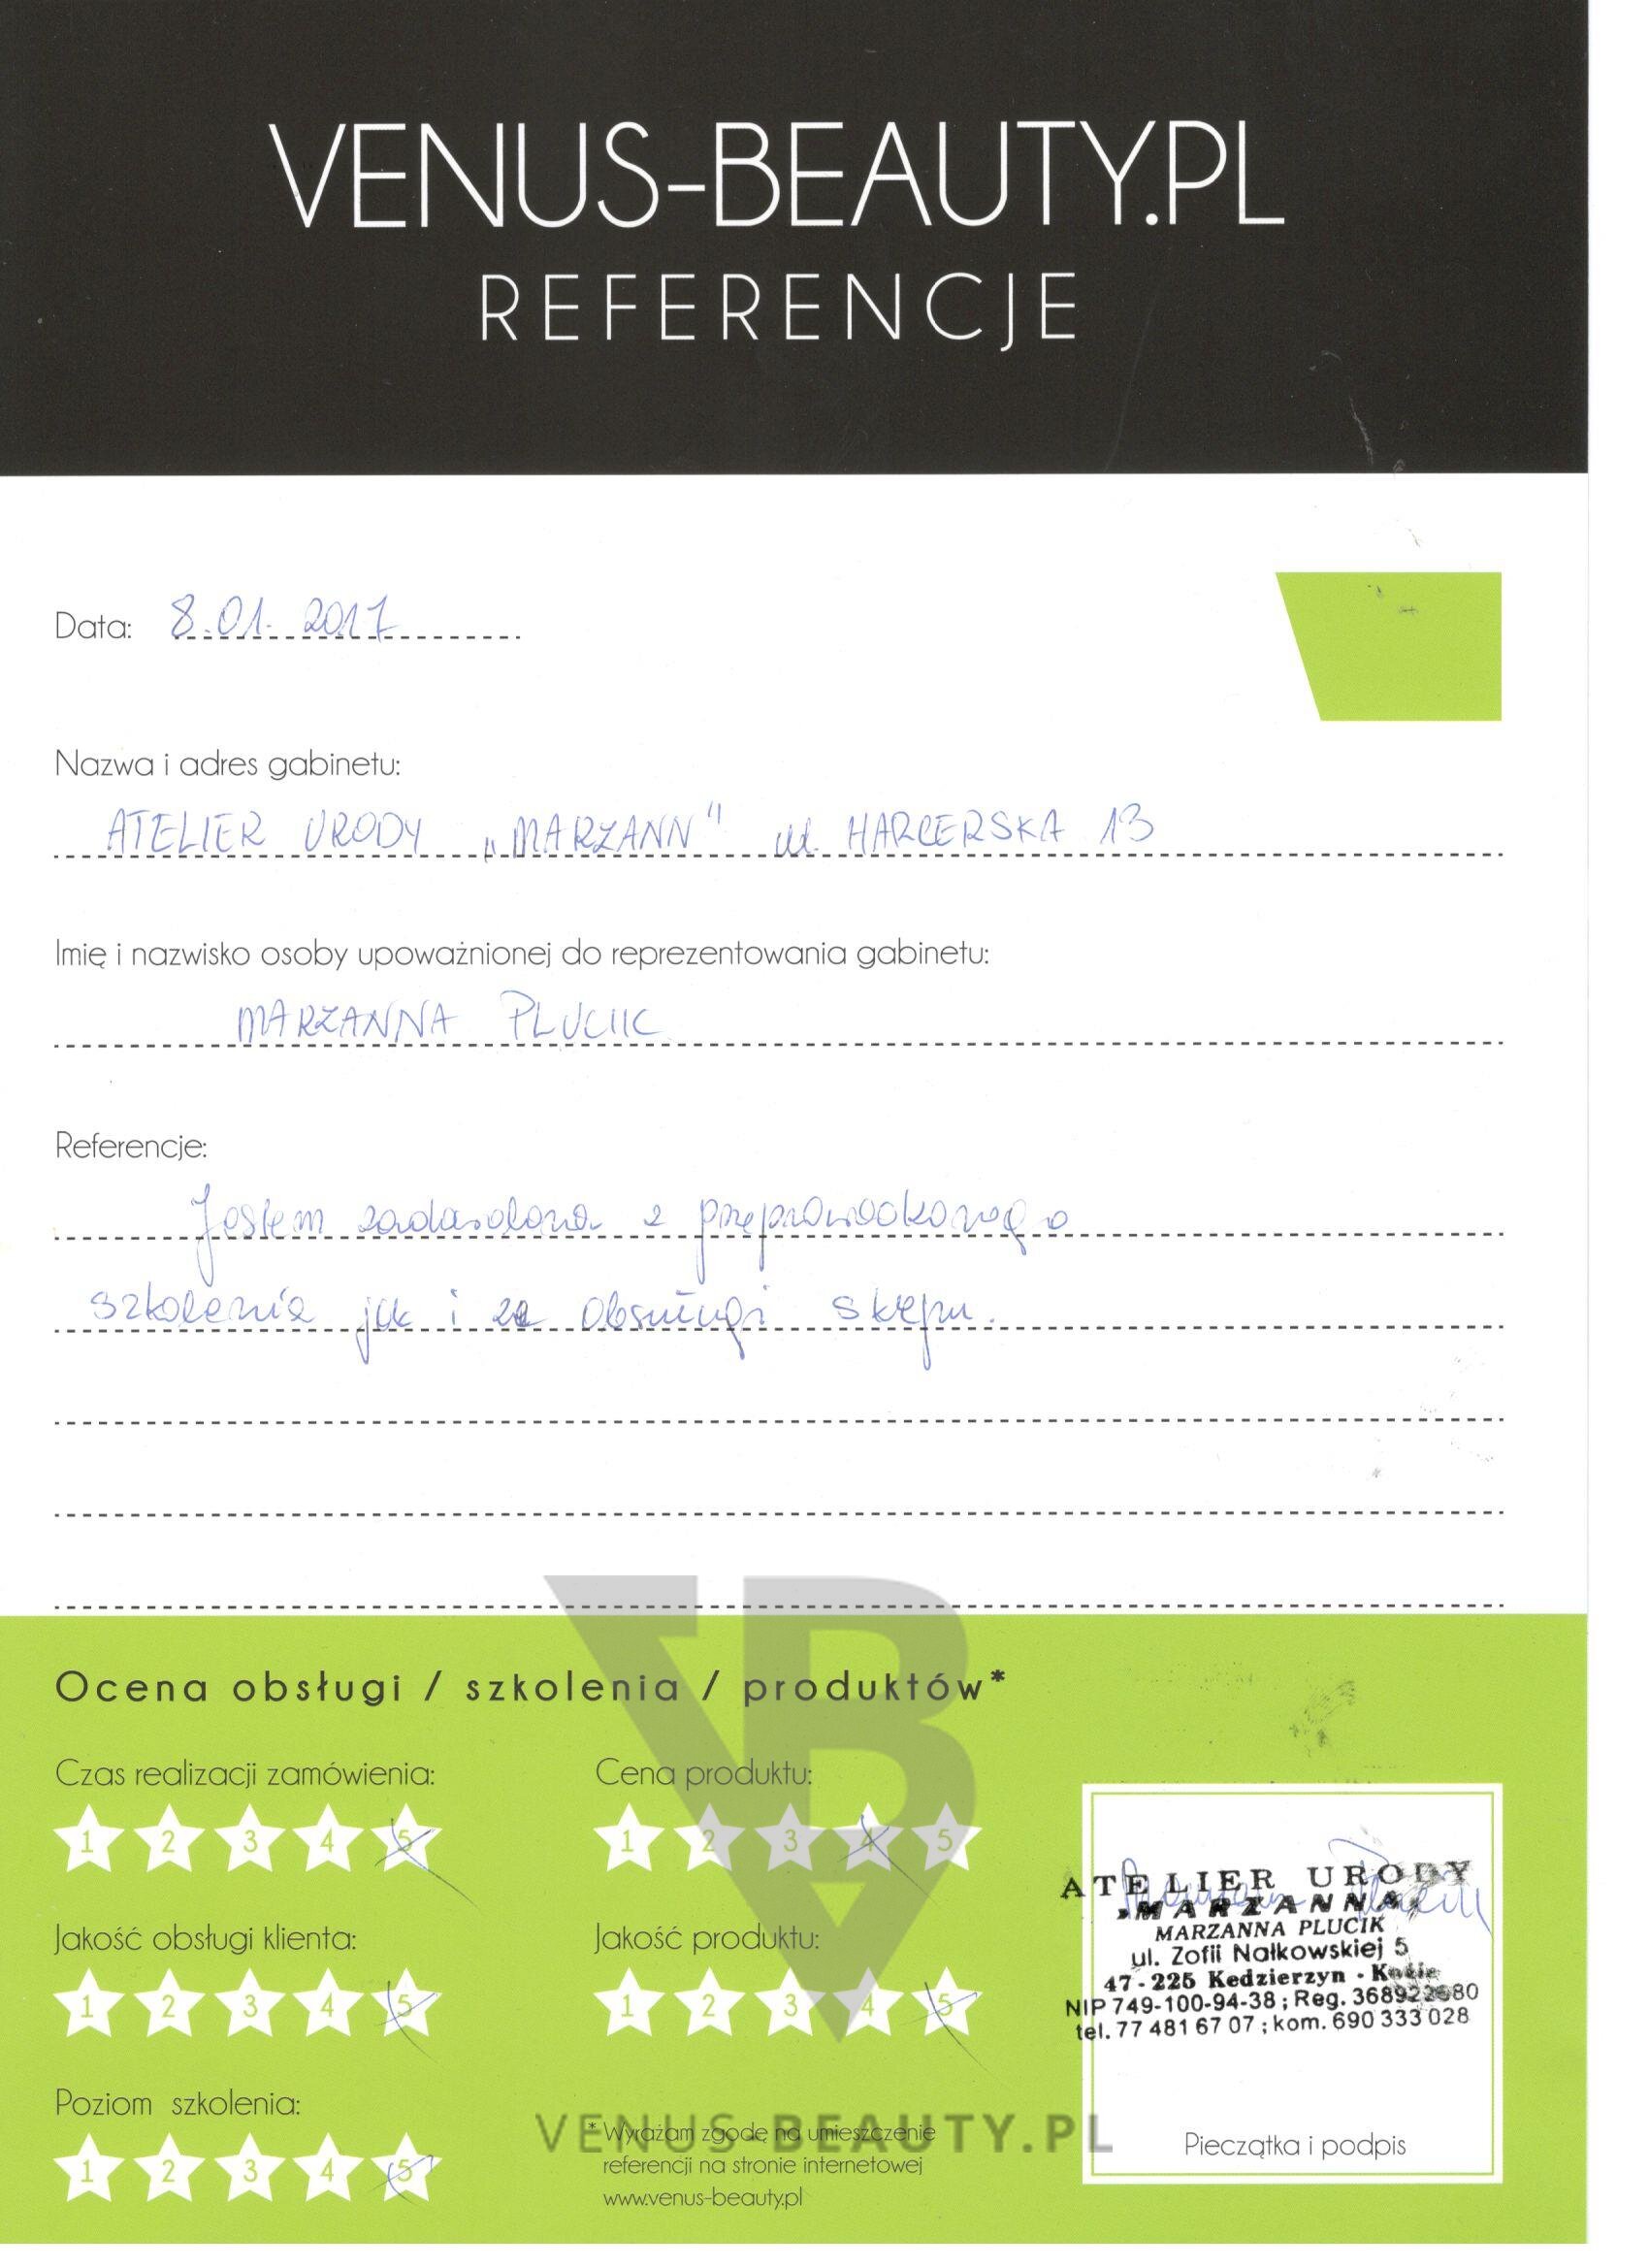 VENUS-BEAUTY.PL
REFERENCJE
Data: 8.01.2017
Nazwa i adres gabinetu:
ATELIER URODY „MARZANN" ul. HARCERSKA 13
Imię i nazwisko osoby upoważnionej do reprezentowania gabinetu:
MARZANNA PLUCIK
Referencje:
Jestem zadowolona z przeprowadzonego
szkolenia jak i ze obsługi sklepu.
Ocena obsługi / szkolenia / produktów*
Czas realizacji zamówienia:
1 2 3 4 5
Cena produktu:
1 2 3 4 5
Jakość obsługi klienta:
1 2 3 4 5
Jakość produktu:
1 2 3 4 5
Poziom szkolenia:
1 2 3 4 5
VENUS-BEAUTY.PL
* Wyrażam zgodę na umieszczenie
referencji na stronie internetowej
www.venus-beauty.pl
ATELIER URODY
MARZANNA
MARZANNA PLUCIK
ul. Zofii Nałkowskiej 5
47-225 Kedzierzyn -
NIP 749-100-94-38; Reg.
tel. 77 481 67 07; kom. 690 333 028
Pieczątka i podpis
VB